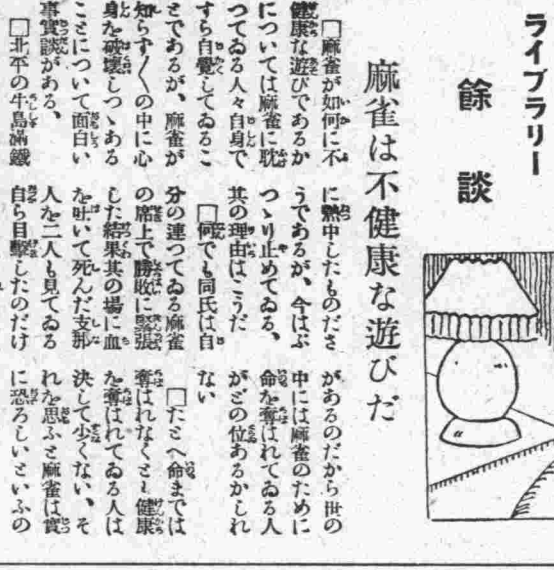 ライブラリー
餘談
麻雀は不健康な遊びだ
□麻雀が如何に不
健康な遊びであるか
については麻雀に耽
つてゐる人々自身で
すら自覺してゐるこ
とであるが、麻雀が
知らず〳〵の中に心
身を破壊しつゝある
ことについて面白い
事實談がある、
□北平の牛島滿鐵
に熱中したものださ
うであるが、今はぶ
つゝり止めてゐる、
其の理由はこうだ
□何でも同氏は自
分の連つてゐる麻雀
の席上で勝敗に緊張
した結果其の場に血
を吐いて死んだ支那
人を二人も見てゐる
自ら目擊したのだけ
があるのだから世の
中には麻雀のために
命を奪はれてゐる人
がどの位あるかしれ
ない
□たとへ命までは
奪はれなくとも健康
を奪はれてゐる人は
決して少くない、そ
れを思ふと麻雀は實
に恐ろしいといふの